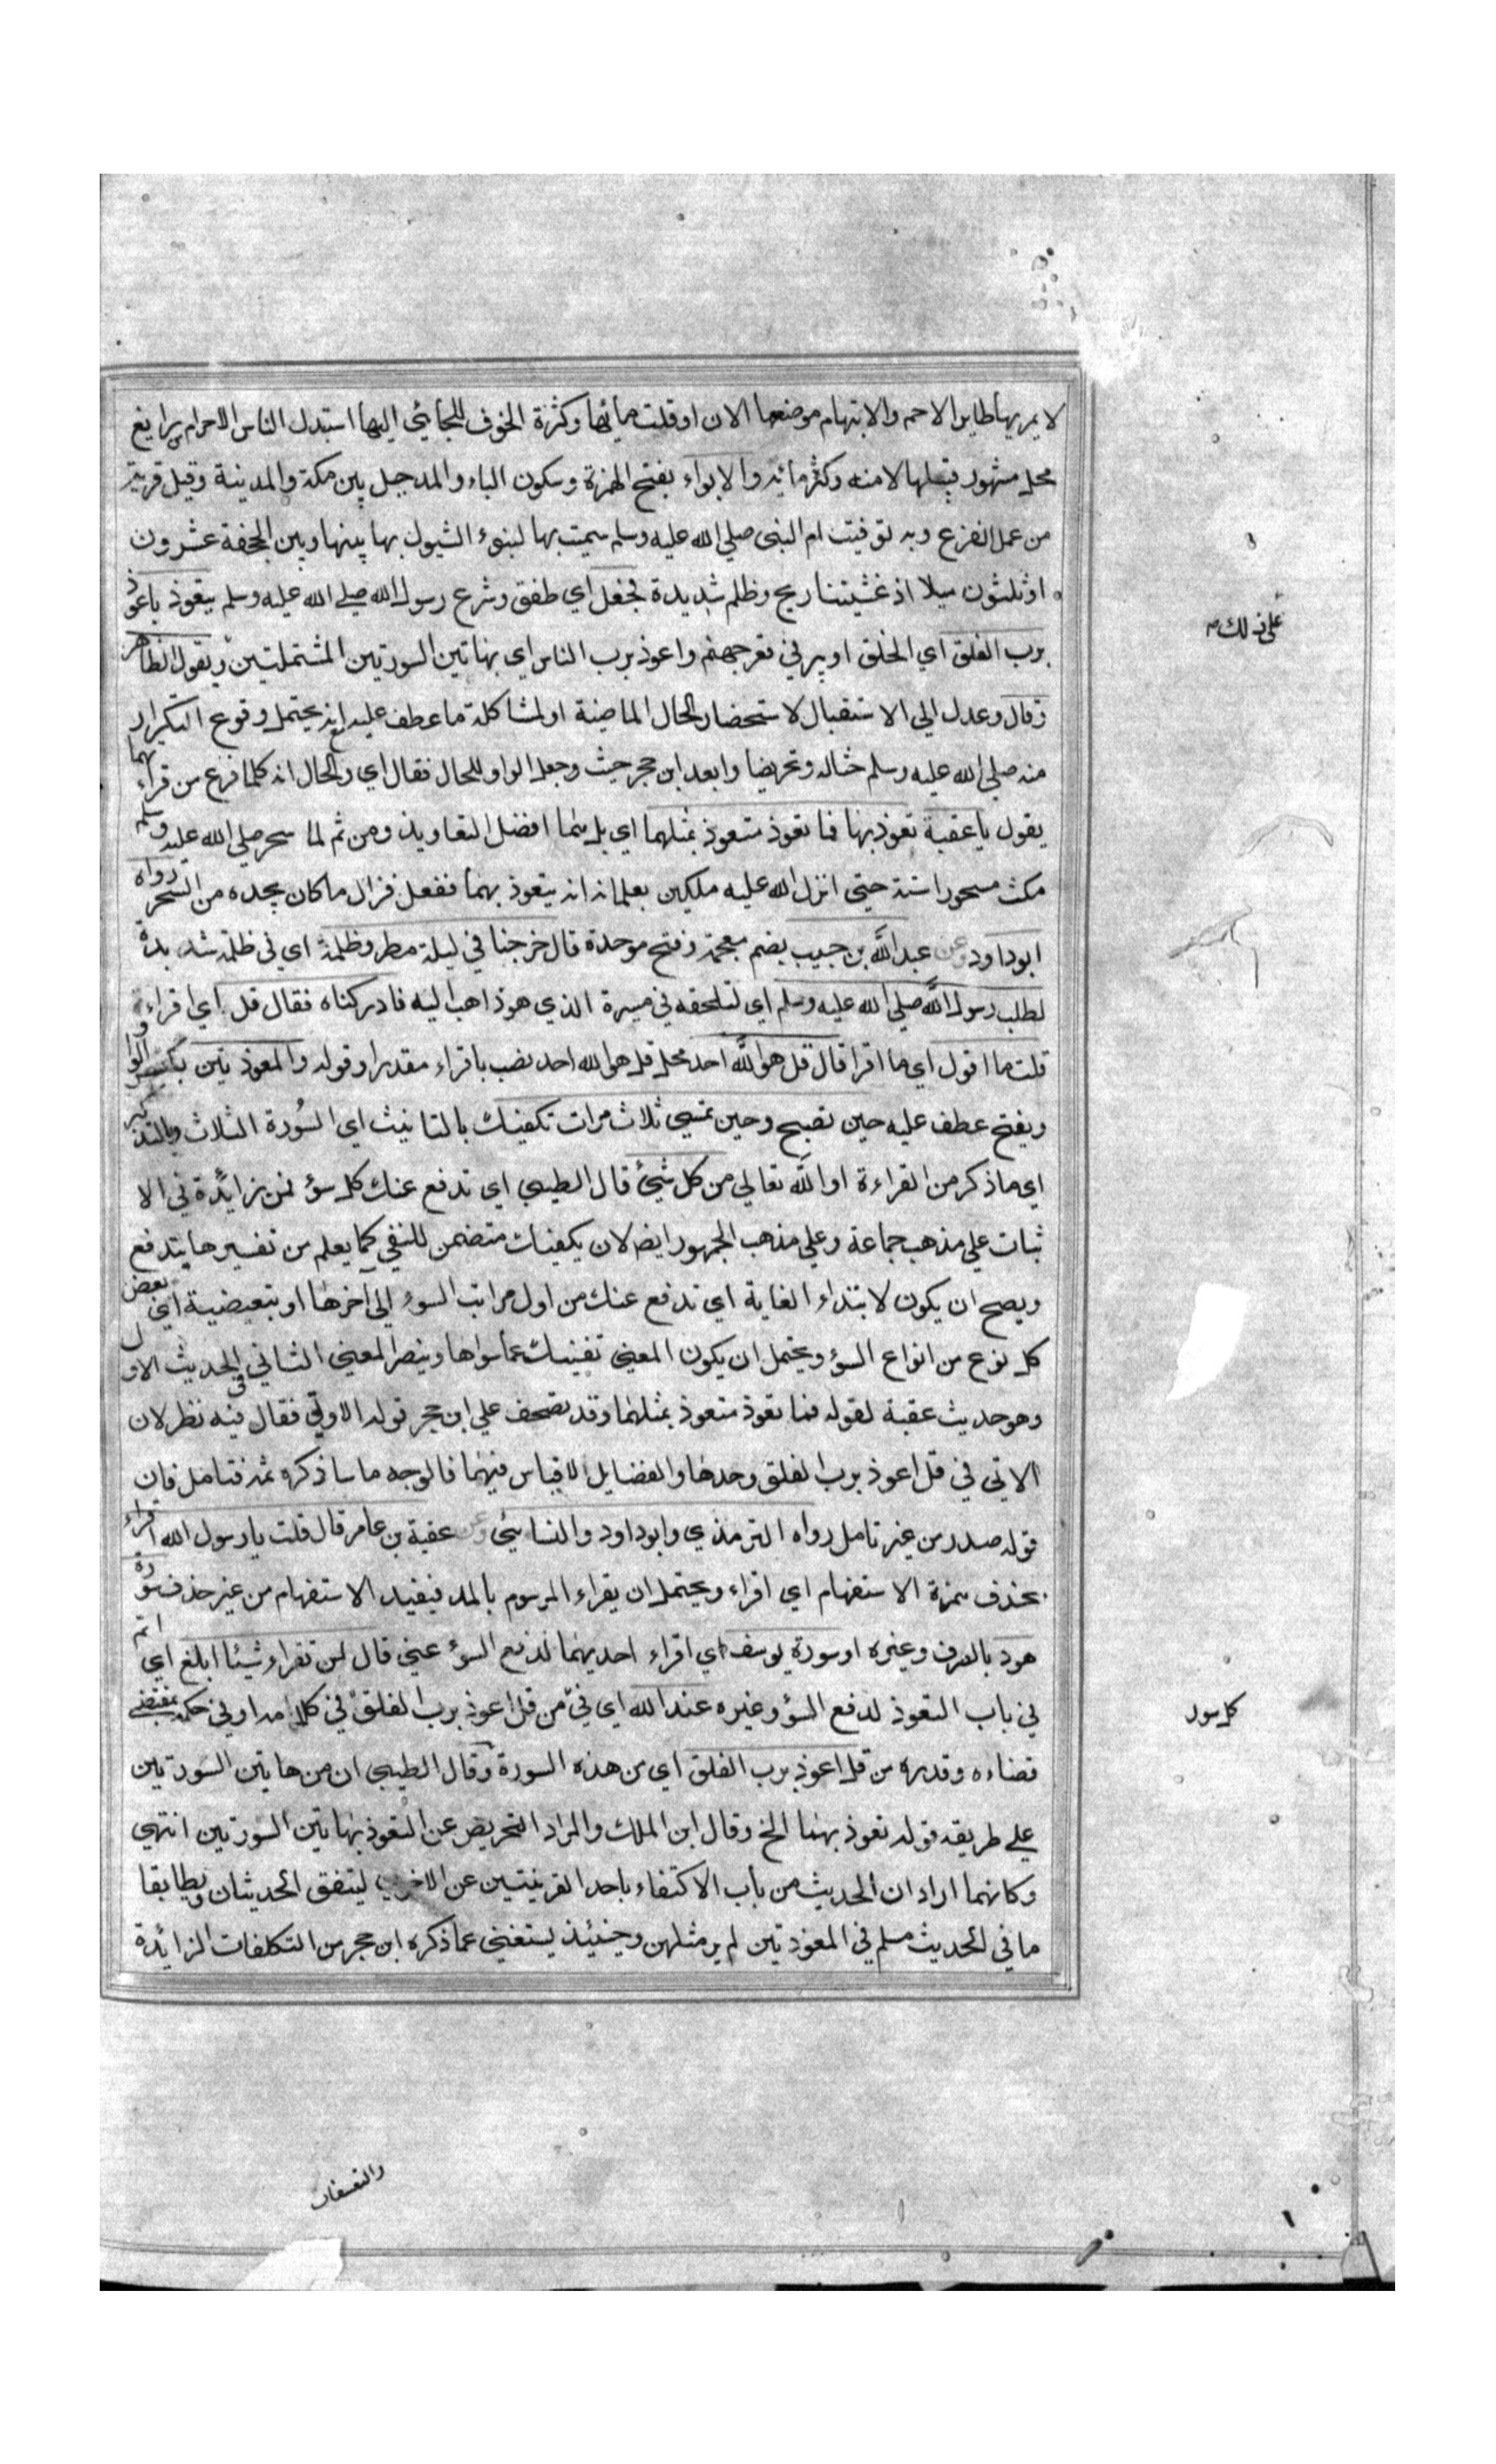 لا يمر بها طاير الا حم والابتهام موضعها الان او قلت مائها وكثرة الخوف للجائي اليها استبدل الناس الاحرام برابغ
محل مشهور قبلها لامنه وكثرمائه والابواء بفتح الهمزة وسكون الباء والمد جبل بين مكة والمدينة وقيل قرية
من عمل الفرع وبه توفيت ام النبي صلي الله عليه وسلم سميت بها لبنوء السيول بها بينها وبين الجحفة عشرون
او ثلثون ميلا اذ غشيتنا ريح وظلم شديدة فجعل اي طفق وشرع رسول الله صلي الله عليه وسلم يتعوذ باعوذ
برب الفلق اي الخلق او بير في قعر جهنم واعوذ برب الناس اي بهاتين السورتين المشتملتين ويقول الظاهر
وقال وعدل الي الاستقبال لاستحضار الحال الماضية او لمشاكلة ما عطف عليه انه يحتمل وقوع التكرار
منه صلي الله عليه وسلم حثاله وتحريضا وابعد ابن حجر حيث وجعل الواو للحال فقال اي والحال انه كلما فرغ من قراءتهما
يقول يا عقبة تعوذ بهما فما تعوذ متعوذ بمثلهما اي بل هما افضل التعاويذ ومن ثم لما سحر صلي الله عليه وسلم
مكث مسحورا سنة حتي انزل الله عليه ملكين يعلمانه انه يتعوذ بهما ففعل فزال ما كان يجده من السحر رواه
ابو داود وعن عبد الله بن خبيب بضم معجمة وفتح موحدة قال خرجنا في ليلة مطر وظلمة اي في ظلمة شديدة
لطلب رسول الله صلي الله عليه وسلم اي لنلحقه في مسيرة الذي هو ذاهب اليه فادركناه فقال قل اي اقراء
قلت ما اقول اي ما اقرا قال قل هو الله احد محل قل هو الله احد نصب باقراء مقدرا وقوله والمعوذتين بكسر الواو
ويفتح عطف عليه حين تصبح وحين تمسي ثلاث مرات تكفيك بالتانيث اي السورة الثلاث وبالتذكير
اي ما ذكر من القراءة او الله تعالي من كل شيئ قال الطيبي اي تدفع عنك كل سؤ فمن زايدة في الا
ثبات علي مذهب جماعة وعلي مذهب الجمهور ايضا لان يكفيك متضمن للنفي كما يعلم من تفسيرها بتدفع
ويصح ان يكون لابتداء الغاية اي تدفع عنك من اول مراتب السوء الي آخرها او تبعيضية اي بعض
كل نوع من انواع السؤ ويحتمل ان يكون المعني تغنيك عما سواها وينصر المعني الثاني في الحديث الاول
وهو حديث عقبة لقوله فما تعوذ متعوذ بمثلهما وقد تصحف علي ابن حجر قوله الاولي فقال فيه نظر لان
الاتي في قل اعوذ برب الفلق وحدها والفضايل لاقياس فيهما فالوجه ما ساذكره ثمه فتامل فان
قوله صدر من غير تامل رواه الترمذي وابو داود والنسايئ وعن عقبة بن عامر قال قلت يا رسول الله اقراء
بحذف همزة الاستفهام اي اقراء ويحتمل ان يقراء المرسوم بالمد فيفيد الاستفهام من غير حذف سورة
هود بالصرف وغيره او سورة يوسف اي اقراء احديهما لدفع السؤ عني قال لن تقراء شيئا ابلغ اي اتم
في باب التعوذ لدفع السؤ وغيره عند الله اي في من قل اعوذ برب الفلق في كلامه او في حكمه بمقتضي
قضاءه وقدره من قل اعوذ برب الفلق اي من هذه السورة وقال الطيبي ان من هاتين السورتين
علي طريقه قوله تعوذ بهما الخ وقال ابن الملك والمراد التحريض عن التعوذ بهاتين السورتين انتهي
وكانهما ارادا ان الحديث من باب الاكتفاء باحد القرينتين عن الاخري ليتفق الحديثان ويطابقا
ما في الحديث مسلم في المعوذتين لم ير مثلهن وحينئذ يستغني عما ذكره ابن حجر من التكلفات الزائدة
علي ذلك
كل سور
والتعسفات